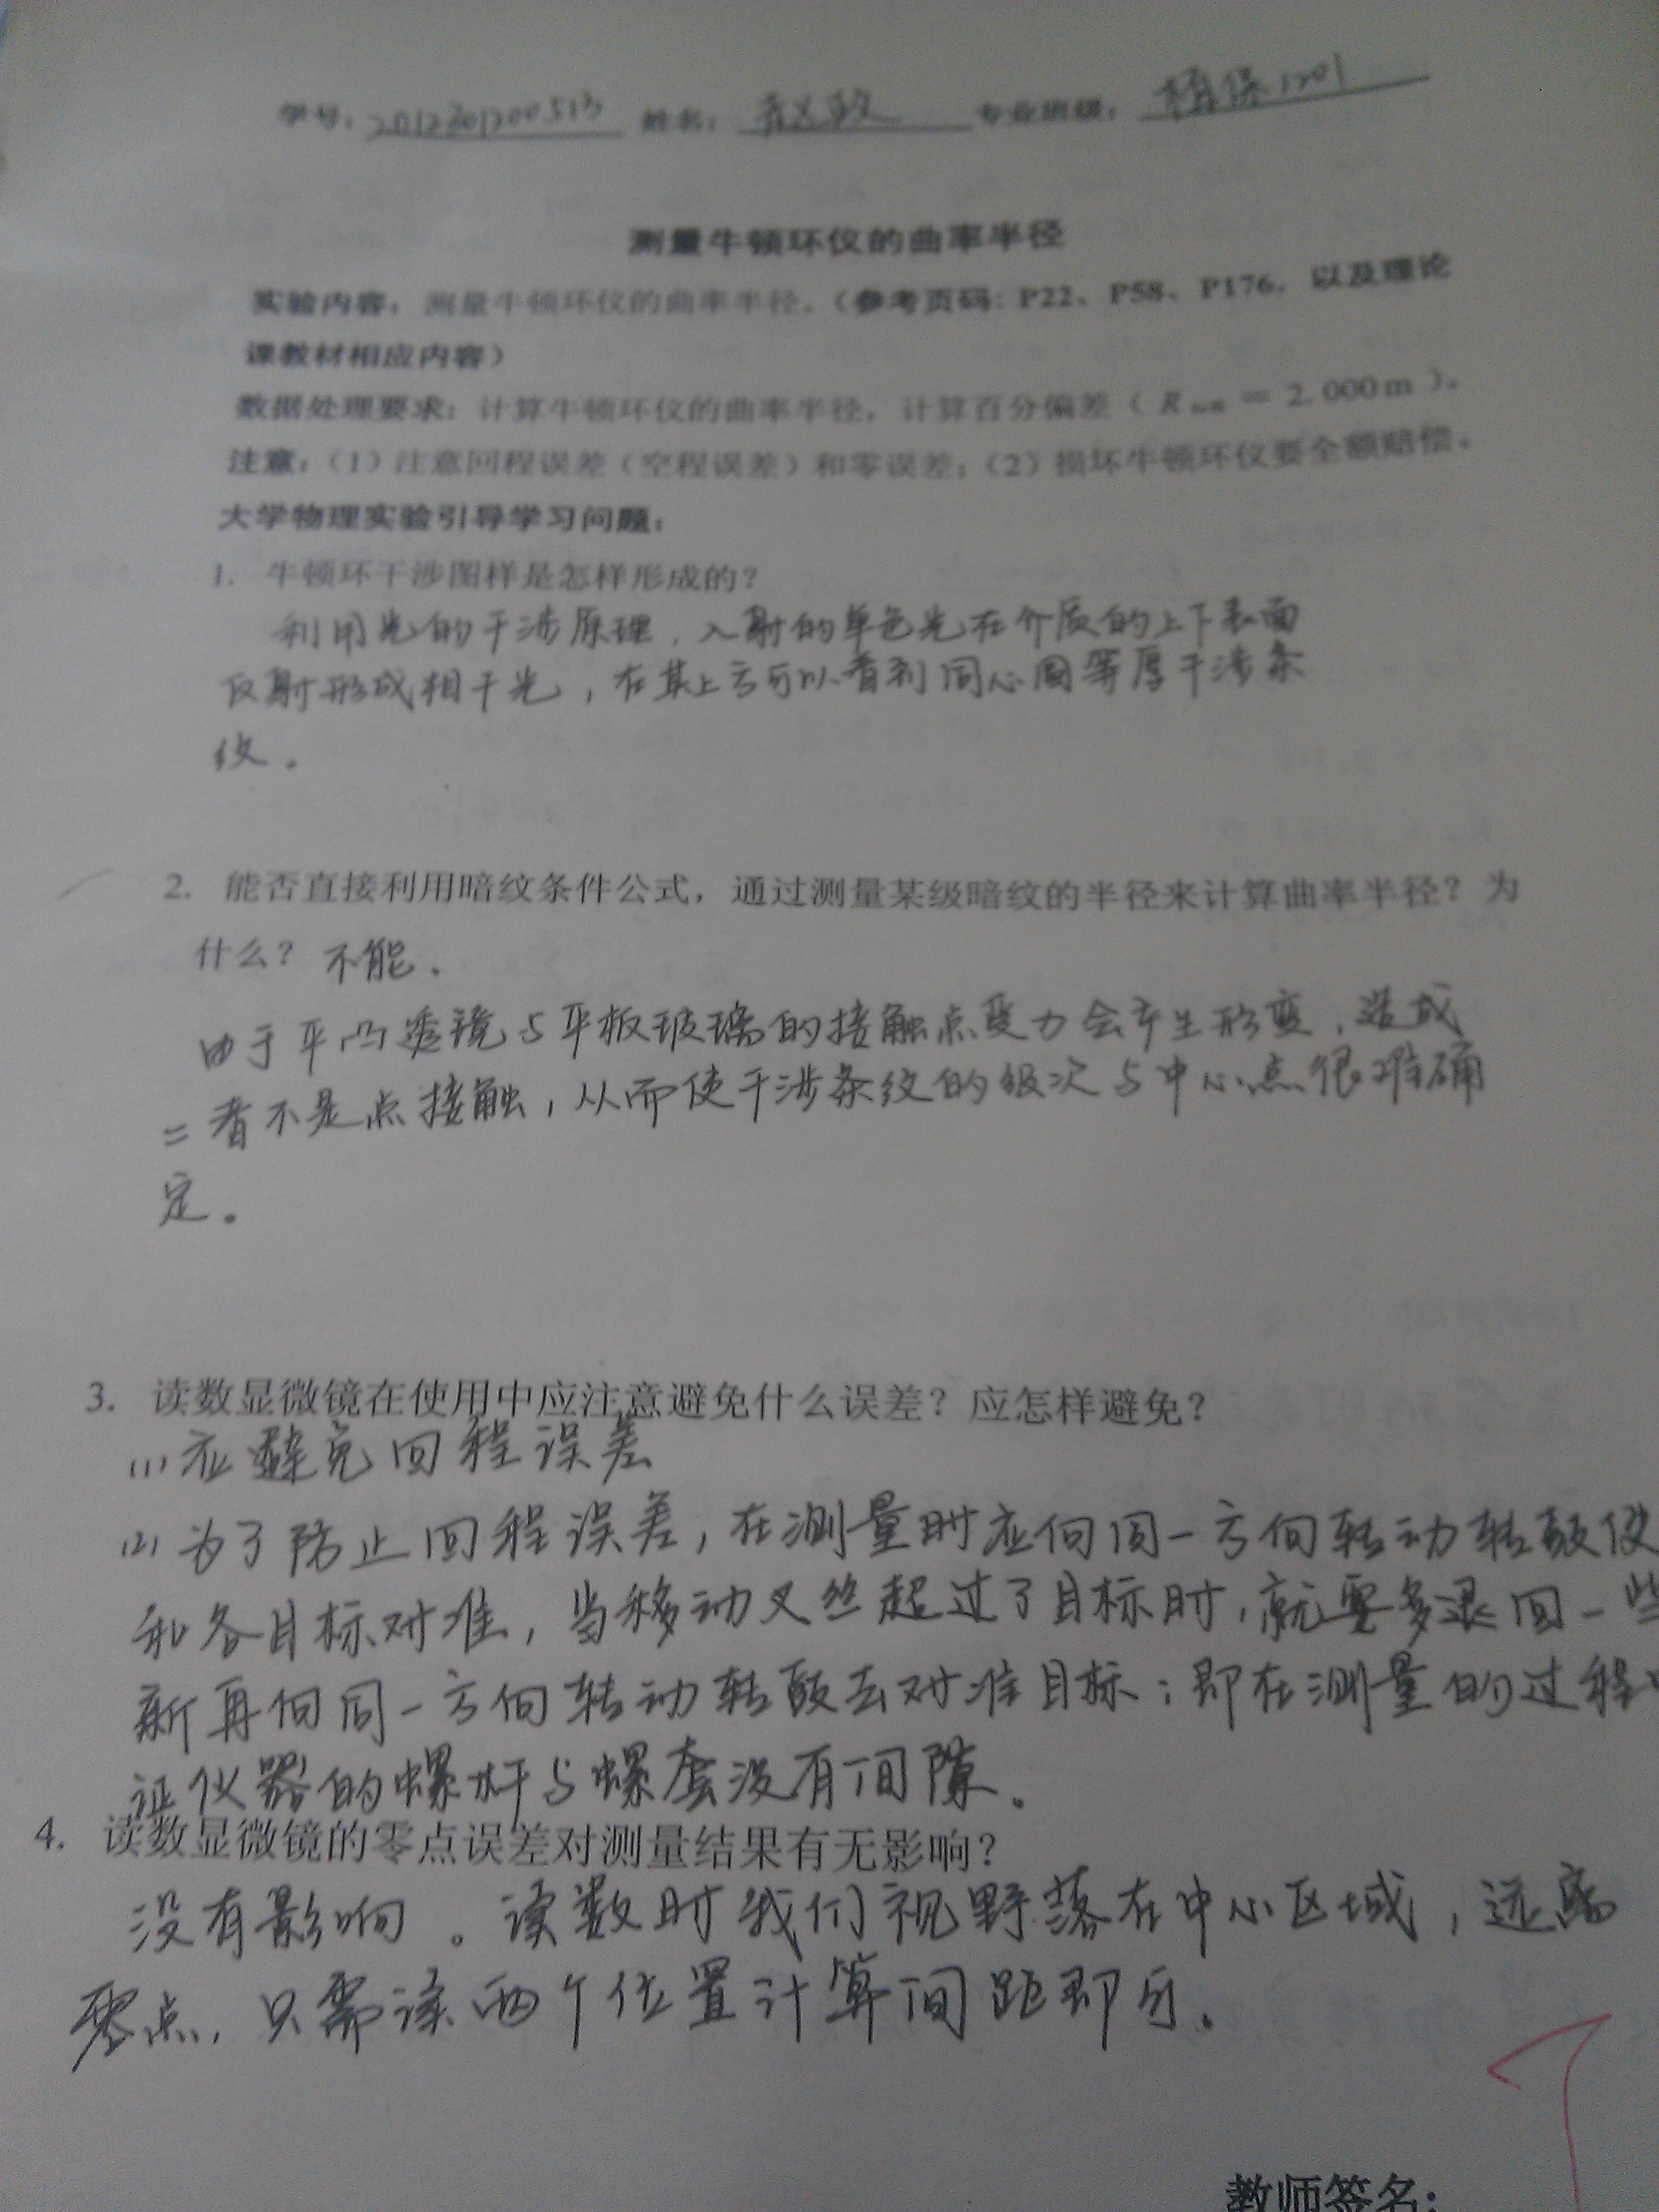 学号：2012301200513 姓名：赵政 专业班级：植保1201
测量牛顿环仪的曲率半径
实验内容：测量牛顿环仪的曲率半径。（参考页码：P22、P58、P176，以及理论
课教材相应内容）
数据处理要求：计算牛顿环仪的曲率半径，计算百分偏差（R = 2.000m）。
注意：（1）注意回程误差（空程误差）和零误差；（2）损坏牛顿环仪要全额赔偿。
大学物理实验引导学习问题：
1. 牛顿环干涉图样是怎样形成的？
利用光的干涉原理，入射的单色光在介质的上下表面
反射形成相干光，在其上方可以看到同心圆等厚干涉条
纹．
2. 能否直接利用暗纹条件公式，通过测量某级暗纹的半径来计算曲率半径？为
什么？ 不能．
由于平凸透镜与平板玻璃的接触点受力会产生形变，造成
二者不是点接触，从而使干涉条纹的级次与中心点很难确
定。
3. 读数显微镜在使用中应注意避免什么误差？应怎样避免？
(1) 应避免回程误差
(2) 为了防止回程误差，在测量时应向同一方向转动转鼓使
和各目标对准，当移动叉丝起过了目标时，就要多退回一些
新再向同一方向转动转鼓去对准目标；即在测量的过程
证仪器的螺杆与螺套没有间隙．
4. 读数显微镜的零点误差对测量结果有无影响？
没有影响。读数时我们视野落在中心区域，远离
零点，只需读两个位置计算间距即可．
教师签名：